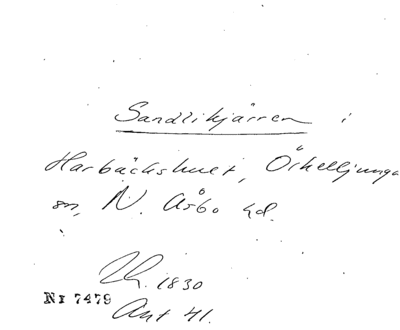 Sandlikjärren i
Harbäckshult, Örkelljunga
sn, N. Åsbo hd.
1830
Nr 7479
Ant 41.